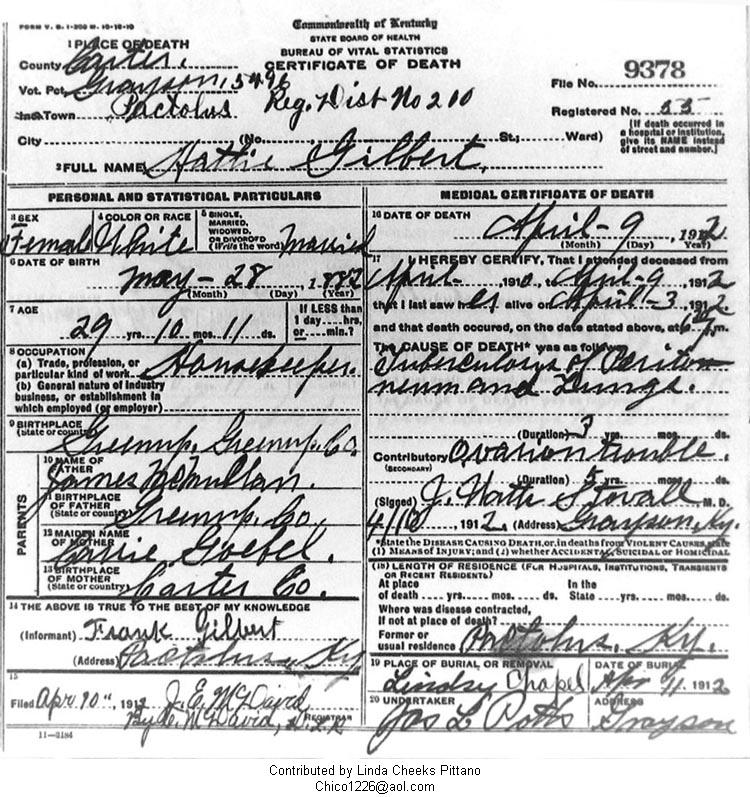 FORM V. S. 1-200 M. 10-10-10
Commonwealth of Kentucky
STATE BOARD OF HEALTH
BUREAU OF VITAL STATISTICS
CERTIFICATE OF DEATH
1 PLACE OF DEATH
County Carter.
Vot. Pct. Grayson, 5496
Inc. Town Pactolus Reg. Dist No 210
File No. 9378
Registered No. 55
City (No. St.; Ward)
(If death occurred in a hospital or institution, give its NAME instead of street and number.)
2 FULL NAME Hattie Gilbert.
PERSONAL AND STATISTICAL PARTICULARS
3 SEX Female
4 COLOR OR RACE White
5 SINGLE, MARRIED, WIDOWED, OR DIVORCED (Write the word) Married
6 DATE OF BIRTH
May - 28 1882
(Month) (Day) (Year)
7 AGE
29 yrs. 10 mos. 11 ds.
If LESS than 1 day....hrs, or....min.?
8 OCCUPATION
(a) Trade, profession, or particular kind of work Housekeeper.
(b) General nature of industry business, or establishment in which employed (or employer)
9 BIRTHPLACE (State or country) Greenup, Greenup, Co.
PARENTS
10 NAME OF FATHER James McMullan.
11 BIRTHPLACE OF FATHER (State or country) Greenup Co,
12 MAIDEN NAME OF MOTHER Goebel.
13 BIRTHPLACE OF MOTHER (State or country) Carter Co.
14 THE ABOVE IS TRUE TO THE BEST OF MY KNOWLEDGE
(Informant) Frank Gilbert
(Address) Pactolus, Ky
15
Filed Apr 10", 1912 J. E. McDavid
By McDavid, REGISTRAR
11-3184
MEDICAL CERTIFICATE OF DEATH
16 DATE OF DEATH
April - 9, 1912
(Month) (Day) Year)
17 I HEREBY CERTIFY, That I attended deceased from
April-, 191, April-9, 1912
that I last saw her alive on April-3, 1912
and that death occured, on the date stated above, at 6 m.
The CAUSE OF DEATH* was as follows:
Tuberculosis of Perito-
neum and Lungs.
(Duration) 3 yrs. mos. ds.
Contributory (SECONDARY) Ovarian trouble.
(Duration) 5 yrs. mos. ds.
(Signed) J. Stovall M. D.
4/10, 1912. (Address) Grayson, Ky.
*State the DISEASE CAUSING DEATH, or, in deaths from VIOLENT CAUSES, state (1) MEANS OF INJURY; and (2) whether ACCIDENTAL, SUICIDAL or HOMICIDAL
(18) LENGTH OF RESIDENCE (FOR HOSPITALS, INSTITUTIONS, TRANSIENTS OR RECENT RESIDENTS)
At place of death .... yrs. .... mos. .... ds. In the State .... yrs. .... mos. .... ds.
Where was disease contracted,
If not at place of death?
Former or usual residence Pactolus, Ky.
19 PLACE OF BURIAL OR REMOVAL
Lindsy Chapel
DATE OF BURIAL
Apr 11, 1912
20 UNDERTAKER
Jas L Potts
ADDRESS
Grayson
Contributed by Linda Cheeks Pittano
Chico1226@aol.com